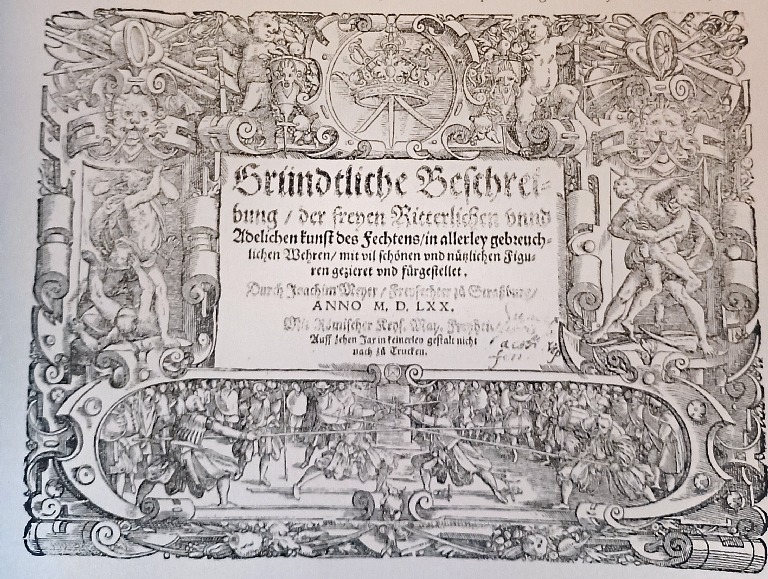 Gründtliche Beschrei-
bung / der freyen Ritterlichen vnnd
Adelichen kunst des Fechtens / in allerley gebreuch-
lichen Wehren / mit vil schönen vnd nützlichen Figu-
ren gezieret vnd fürgestellet.
Durch Joachim Meyer / Freyfechter zů Straßburg /
ANNO M. D. LXX.
Mit Römischer Keys. May. Freyheit
Auff zehen Jar in keinerley gestalt nicht
nach zů Trucken.